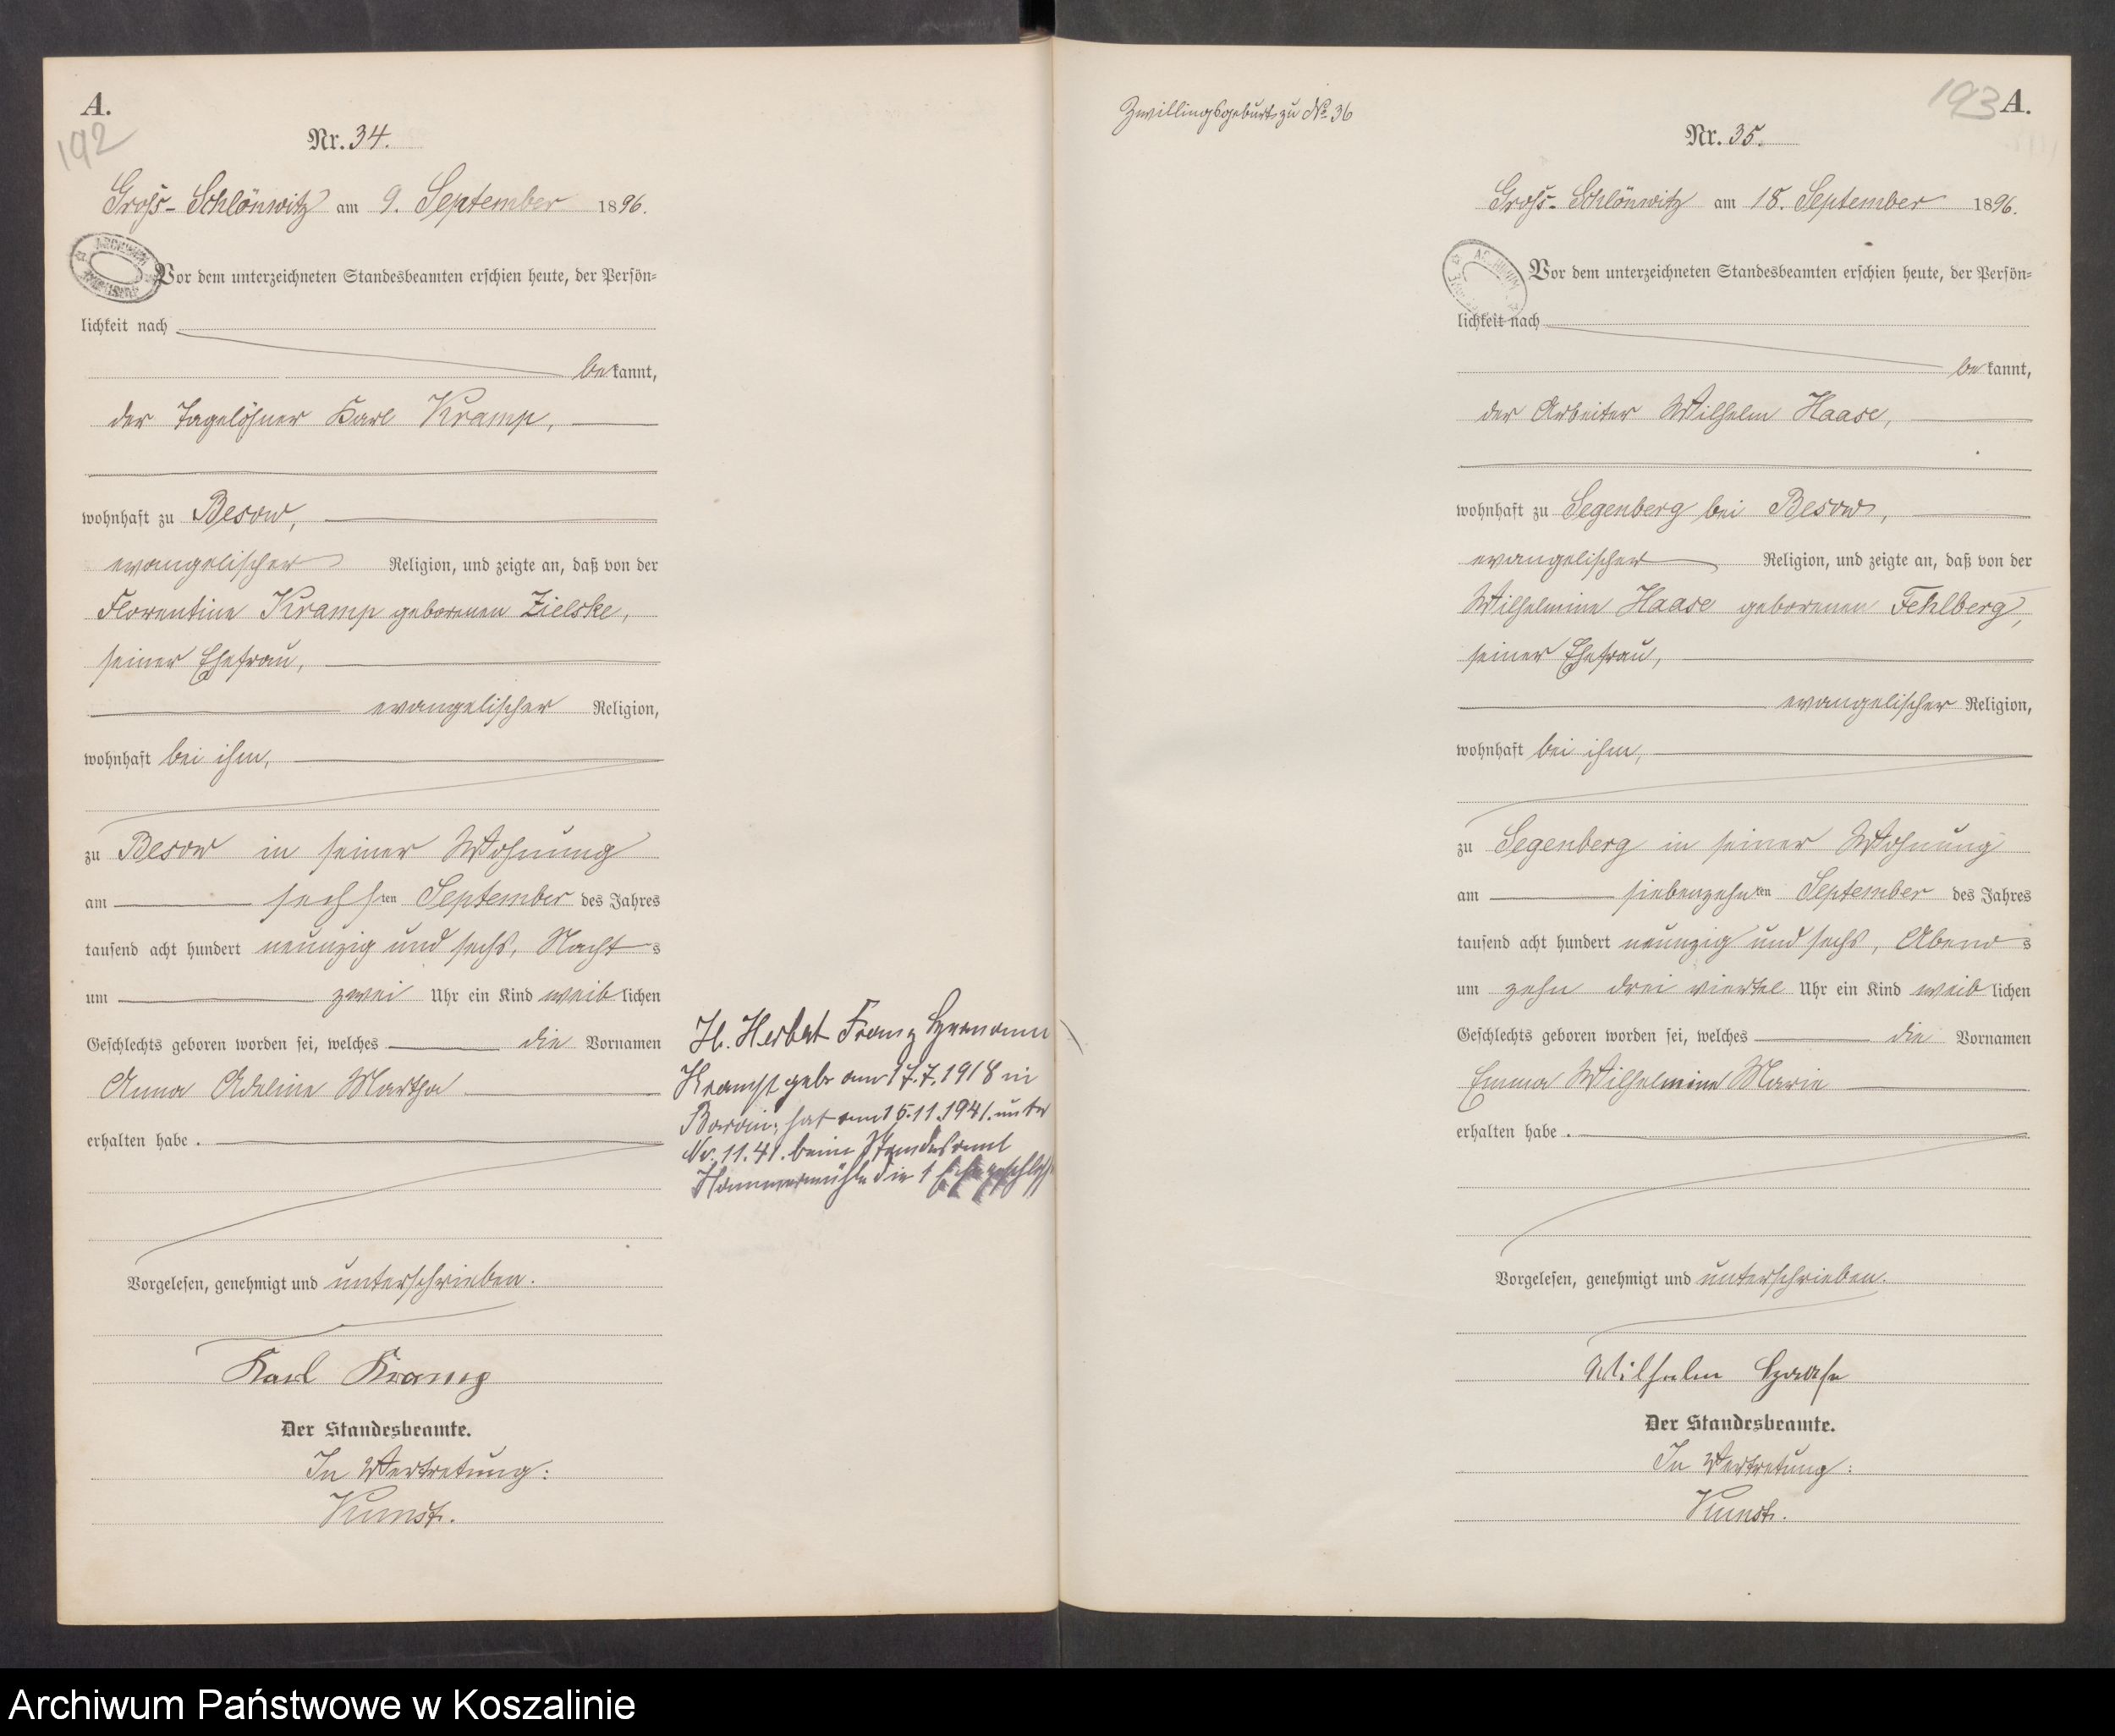 A.
192
Nr. 34.
Groß-Schlönwitz am 9. September 1896.
Vor dem unterzeichneten Standesbeamten erschien heute, der Persön-
lichkeit nach
bekannt,
der Tagelöhner Karl Kramp,
wohnhaft zu Besow,
evangelischer Religion, und zeigte an, daß von der
Florentine Kramp geborenen Zielske,
seiner Ehefrau,
evangelischer Religion,
wohnhaft bei ihm,
zu Besow in seiner Wohnung
am sechsten September des Jahres
tausend acht hundert neunzig und sechs, Nachts
um zwei Uhr ein Kind weiblichen
Geschlechts geboren worden sei, welches die Vornamen
Anna Adeline Martha
erhalten habe.
Vorgelesen, genehmigt und unterschrieben.
Karl Kramp
Der Standesbeamte.
In Vertretung:
Kunst.
H. Herbert Franz Hermann
Kramp geb. am 17.7.1918 in
hat am 15.11.1941. unter
Nr. 11.41. beim Standesamt
Hammermühle die 1 Ehe geschloss
Zwillingsgeburt zu No. 36
193 A.
Nr. 35.
Groß-Schlönwitz am 18. September 1896.
Vor dem unterzeichneten Standesbeamten erschien heute, der Persön-
lichkeit nach
bekannt,
der Arbeiter Wilhelm Haase,
wohnhaft zu Segenberg bei Besow,
evangelischer Religion, und zeigte an, daß von der
Wilhelmine Haase geborenen Fehlberg,
seiner Ehefrau,
evangelischer Religion,
wohnhaft bei ihm,
zu Segenberg in seiner Wohnung
am siebenzehnten September des Jahres
tausend acht hundert neunzig und sechs, Abends
um zehn drei viertel Uhr ein Kind weiblichen
Geschlechts geboren worden sei, welches die Vornamen
Emma Wilhelmine Marie
erhalten habe.
Vorgelesen, genehmigt und unterschrieben.
Wilhelm Haase
Der Standesbeamte.
In Vertretung:
Kunst.
Archiwum Państwowe w Koszalinie